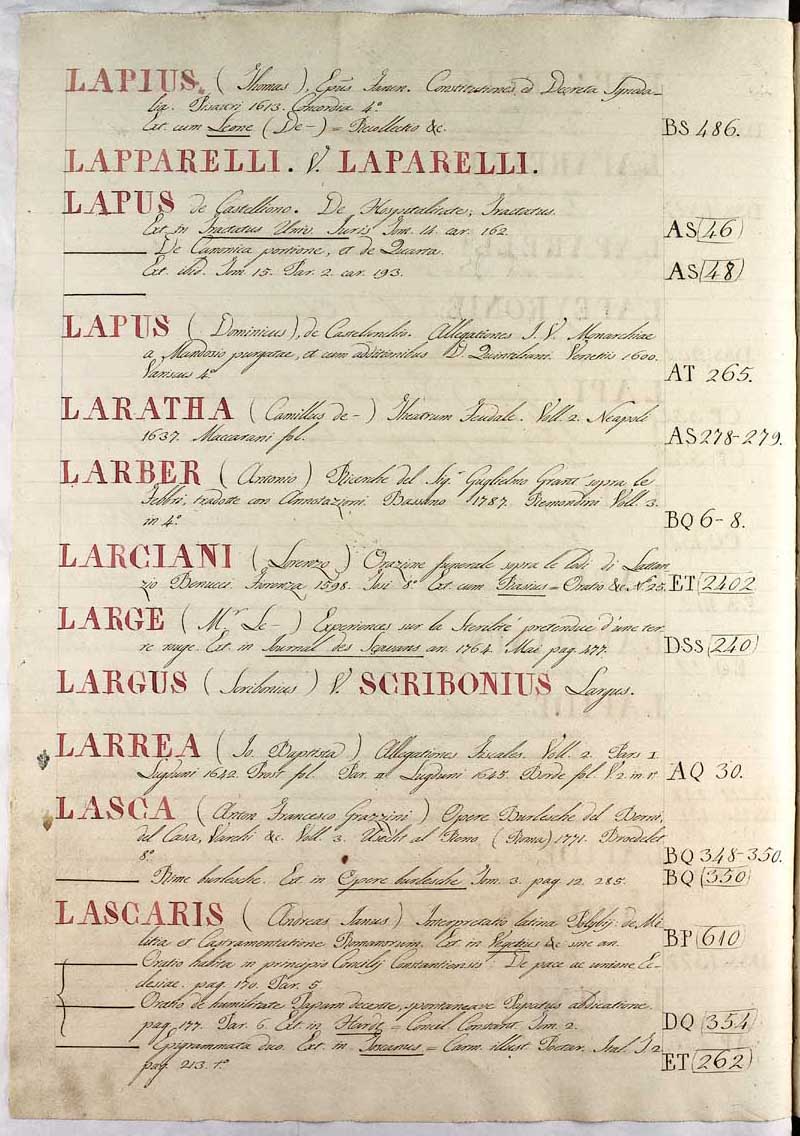 LAPIUS. (Thomas), Epũs Fanen. Constitutiones, et Decreta Synoda-
lia. Pisauri 1613. Concordia 4º
Ext. cum Leone (De-) = Recollectio &c. BS 486.
LAPPARELLI. V. LAPARELLI.
LAPUS de Castelliono. De Hospitalitate, Tractatus.
Ext. in Tractatus Univ. Juris Tom. 14. car. 162. AS (46)
De Canonica portione, et de Quarta.
Ext. ibid. Tom. 15. Par. 2. car. 193. AS (48)
LAPUS (Dominicus), de Castellonchio. Allegationes J. V. Monarchiae
a Mandosio purgatae, et cum additionibus D. Quintiliani. Venetiis 1600.
Variscus 4º AT 265.
LARATHA (Camillus de-) Theatrum Feudale. Voll. 2. Neapoli
1637. Maccarani fol. AS 278-279.
LARBER (Antonio) Ricerche del Sig.r Guglielmo Grant sopra le
Febbri, tradotte con Annotazioni. Bassano 1787. Remondini Voll. 3.
in 4º BQ 6-8.
LARCIANI (Lorenzo) Orazione funerale sopra le lodi di Lattan
zio Benucci. Fiorenza 1598. Tosi 8º Ext. cum = Oratio &c Nº 25. ET (2402
LARGE (M.r Le-) Experiences sur la Sterilité pretendue d'une ter-
re rouge. Ext. in Journal des Sçavans an. 1764. Mai pag. 477. DSS (240)
LARGUS (Scribonius) V. SCRIBONIUS Largus.
LARREA (Io. Baptista) Allegationes Fiscales. Voll. 2. Pars 1.
Lugduni 1642. Prost fol. Par. 2 Lugduni 1645. Borde fol. V. 2. in 1. AQ 30.
LASCA (Anton Francesco Grazzini) Opere Burlesche del Berni,
del Casa, Varchi &c. Voll. 3. Usecht al Reno (Roma) 1771. Broedelet
8º BQ 348-350.
Rime burlesche. Ext. in Opere burlesche Tom. 3. pag. 12. 285. BQ (350)
LASCARIS (Andreas Janus) Interpretatio latina Polybij de Mi-
litia et Castrametatione Romanorum. Ext. in Vegetius &c sine an. BP (610)
Oratio habita in principio Concilij Constantiensis: De pace ac unione Ec-
clesiae. pag. 170. Par. 5.
Oratio de humilitate Papam decente, spontaneave Papatus abdicatione.
pag. 177. Par. 6. Ext. in Hardt = Concil. Constant. Tom. 2. DQ (354)
Epigrammata duo. Ext. in Toscanus = Carm. illust. Poetar. Ital. T. 2
pag. 213. tº ET (262)